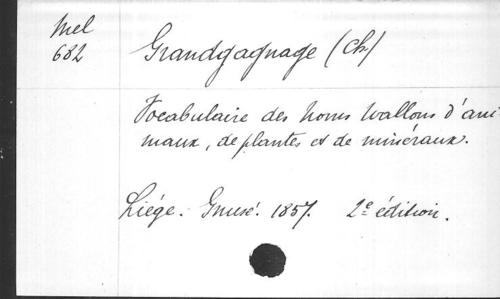 Mel
682
Grandgagnage (Ch)
Vocabulaire des noms wallons d'ani-
maux, de plantes et de minéraux.
Liége. Gnusé. 1857. 2e édition.